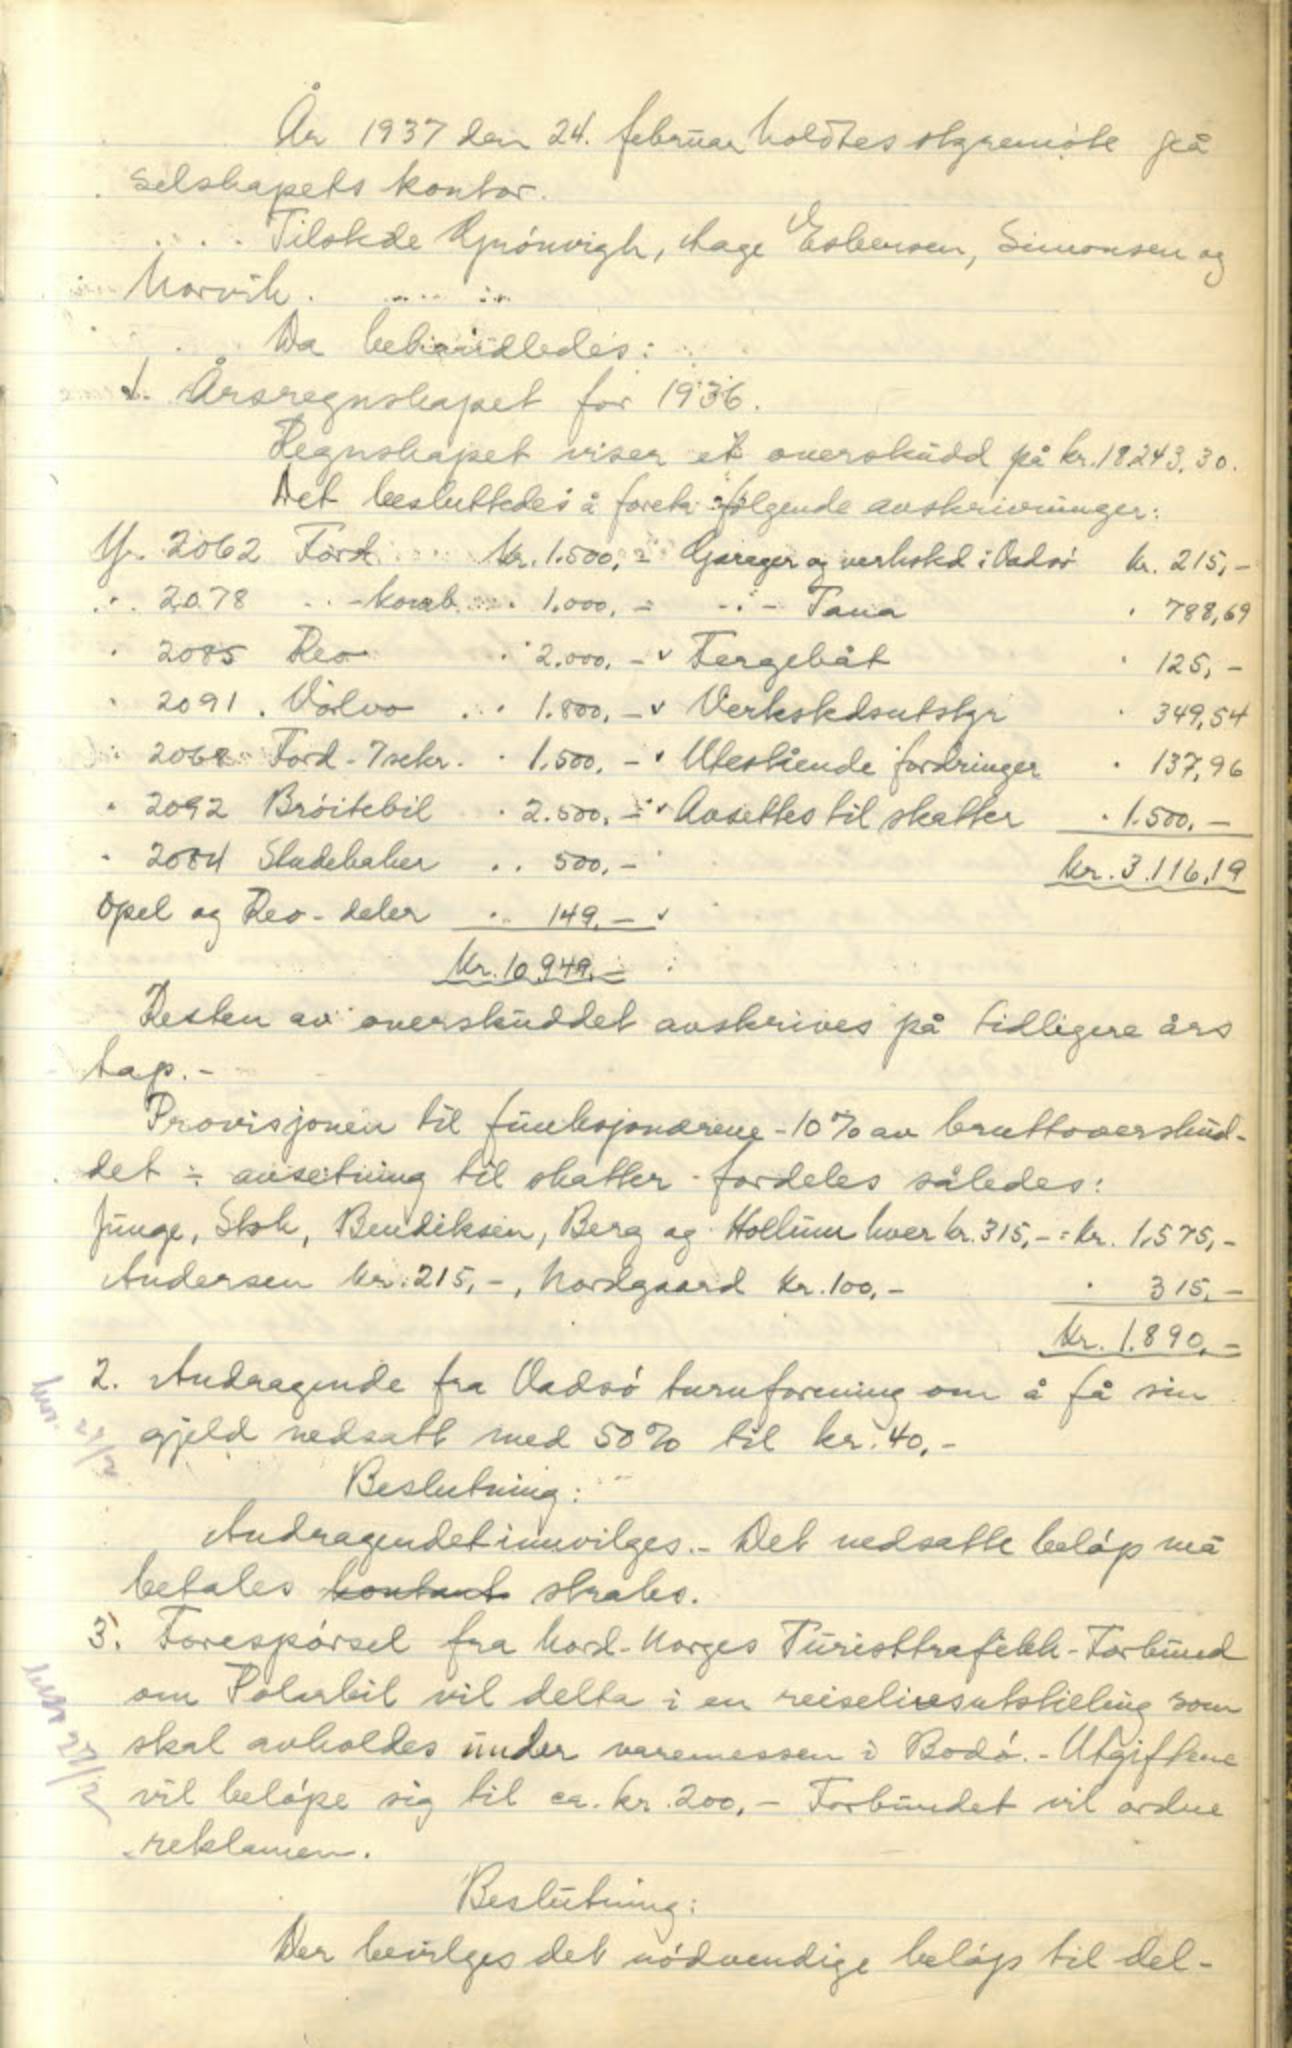 År 1937 den 24. februar holdtes styremöte på
selskapets kontor.
Tilstede Grönvigh, Aage Esbensen, Simonsen og
Norvik.
Da behandledes:
1. Årsregnskapet for 1936.
Regnskapet viser et overskudd på kr. 18.243,30.
Det besluttedes å foreta fölgende avskrivninger:
Y. 2062 Ford kr. 1.500,- Garager og verksted i Vadsö kr. 215,-
" 2078 - komb. " 1.000,- -"- Tana " 788,69
" 2085 Reo " 2.000,- v Fergebåt " 125,-
" 2091 Volvo " 1.800,- v Verkstedsutstyr " 349,54
" 2068 Ford - 7 seter. " 1.500,- v Utestående fordringer " 137,96
" 2092 Bröitebil " 2.500,- v Avsettes til skatter " 1.500,-
" 2084 Studebaker " 500,- kr. 3.116,19
Opel og Reo-deler " 149,- v
Kr. 10.949,-
Resten av overskuddet avskrives på tidligere års
tap.-
Provisjonen til funksjonærene - 10% av bruttooverskud-
det ÷ avsetning til skatter - fordeles således:
Junge, Stok, Bendiksen, Berg og Hollum hver kr. 315,- = kr. 1.575,-
Andersen kr. 215,-, Nordgaard kr. 100,- " 315,-
Kr. 1.890,-
2. Andragende fra Vadsö turnforening om å få sin
gjeld nedsatt med 50% til kr. 40,-
Beslutning:
Andragendet innvilges.- Det nedsatte belöp må
betales kontant straks.
3. Forespörsel fra Nord-Norges Turisttrafikk-Forbund
om Polarbil vil delta i en reiselivsutstilling som
skal avholdes under varemessen i Bodö.- Utgiftene
vil belöpe sig til ca. kr. 200,- Forbundet vil ordne
reklamen.
Beslutning:
Der bevilges det nödvendige belöp til del-
27/2
27/2